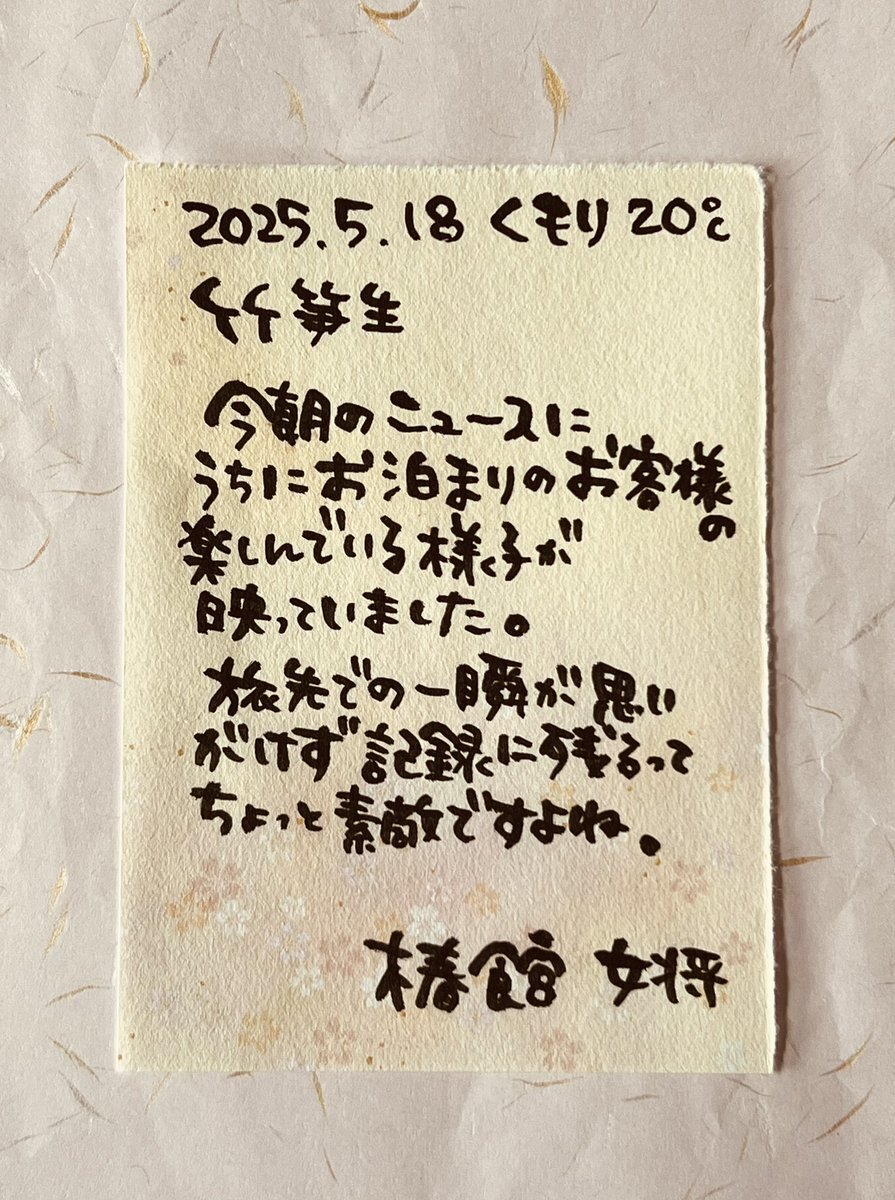 2025.5.18 くもり 20℃
竹笋生
今朝のニュースに
うちにお泊まりのお客様の
楽しんでいる様子が
映っていました。
旅先での一瞬が思い
がけず記録に残るって
ちょっと素敵ですよね。
椿館 女将